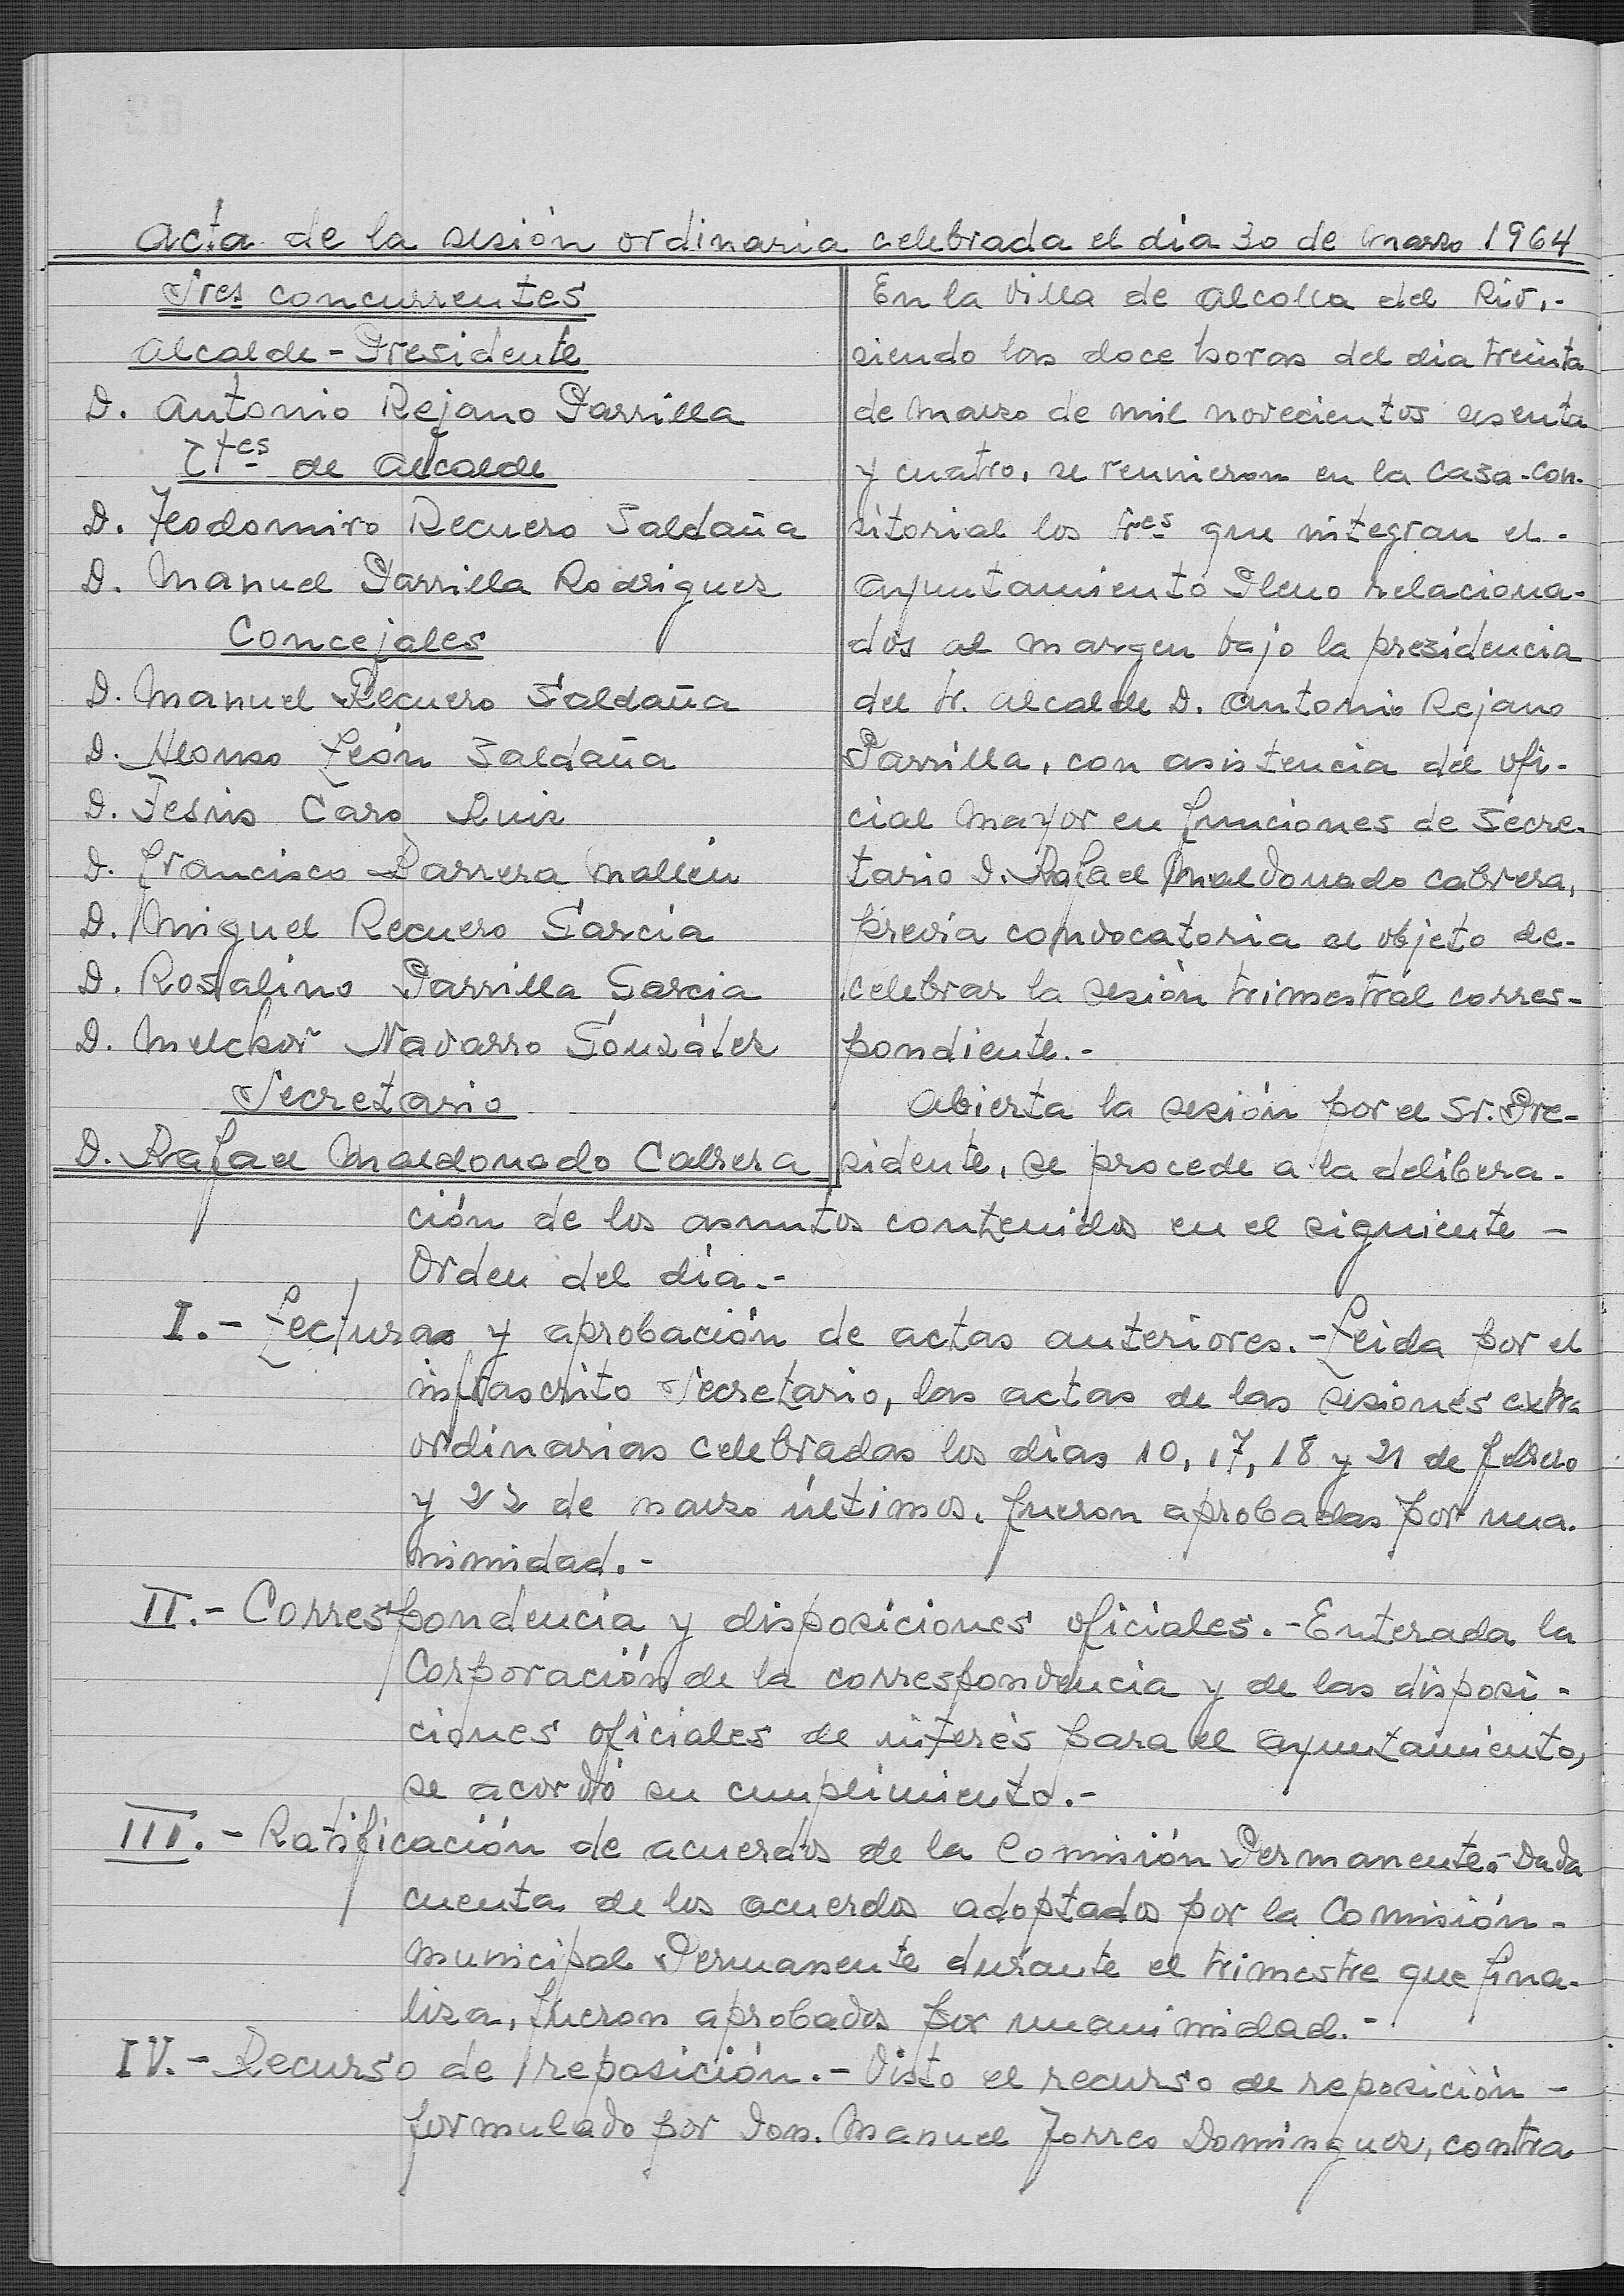 Acta de la sesión ordinaria celebrada el día 30 de Marzo 1964
Sres concurrentes
Alcalde-Presidente
D. Antonio Rejano Parrilla
Ttes de Alcalde
D. Teodomiro Recuero Saldaña
D. Manuel Parrilla Rodriguez
Concejales
D. Manuel Recuero Saldaña
D. Alonso León Saldaña
D. Jesús Caro Ruiz
D. Francisco Barrera Mallén
D. Miguel Recuero García
D. Rosalino Parrilla Garcia
D. Melchor Navarro González
Secretario
D. Rafael Maldonado Cabrera
En la Villa de Alcolea del Rio,-
siendo las doce horas del dia treinta
de Marzo de mil novecientos sesenta
y cuatro, se reunieron en la Casa-Con-
sitorial los Sres que integran el-
Ayuntamiento Pleno relaciona-
dos al margen bajo la presidencia
del Sr. Alcalde D. Antonio Rejano
Parrilla, con asistencia del Ofi-
cial Mayor en funciones de Secre-
tario D. Rafael Maldonado Cabrera,
previa convocatoria al objeto de-
celebrar la sesión trimestral corres-
pondiente.-
Abierta la sesión por el Sr. Pre-
sidente, se procede a la delibera-
ción de los asuntos contenidos en el siguiente -
Orden del día.-
I.- Lecturas y aprobación de actas anteriores.- Leida por el
infrascrito Secretario, las actas de las sesiones extra
ordinarias celebradas los dias 10, 17, 18 y 21 de febrero
y 22 de marzo últimos, fueron aprobadas por una-
nimidad.-
II.- Correspondencia y disposiciones oficiales.- Enterada la
Corporación de la correspondencia y de las disposi-
ciones oficiales de interés para el Ayuntamiento,
se acordó su cumplimiento.-
III.- Ratificación de acuerdos de la Comisión Permanente.- Dada
cuenta de los acuerdos adoptados por la Comisión-
Municipal Permanente durante el trimestre que fina-
liza, fueron aprobados por unanimidad.-
IV.- Recurso de reposición.- Visto el recurso de reposición -
formulado por Don. Manuel Torres Dominguez, contra